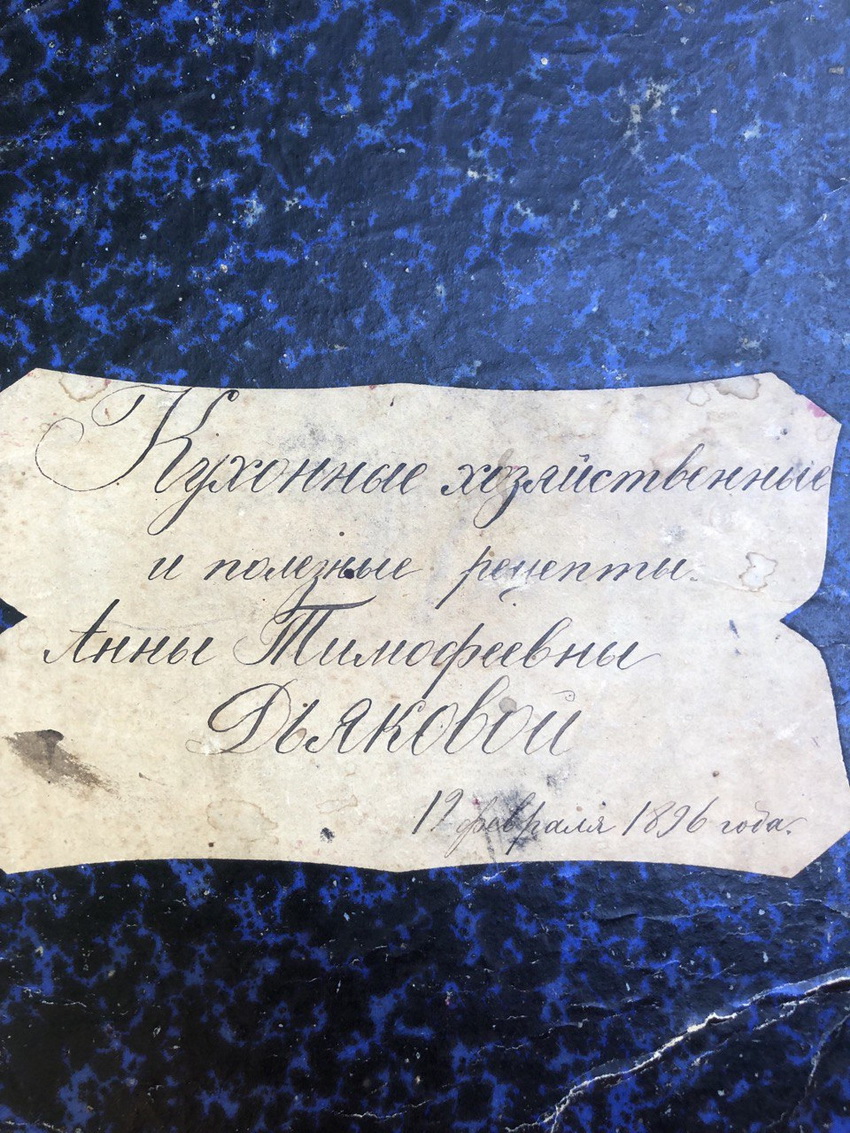 Кухонные хозяйственные
и полезные рецепты.
Анны Тимофеевны
Дьяковой
19 февраля 1896 года.